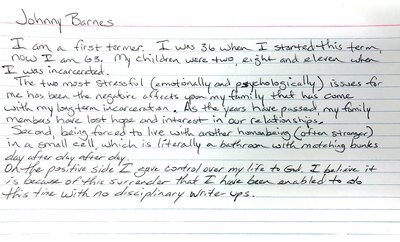 Johnny Barnes
I am a first termer. I was 36 when I started this term,
now I am 63. My children were two, eight and eleven when
I was incarcerated.
The two most stressful (emotionally and psychologically) issues for
me has been the negative affects upon my family that has come
with my long term incarceration. As the years have passed, my family
members have lost hope and interest in our relationships.
Second, being forced to live with another human being (often stranger)
in a small cell, which is literally a bathroom with matching bunks
day after day after day.
On the positive side I gave control over my life to God. I believe it
is because of this surrender that I have been enabled to do
this time with no disciplinary write ups.